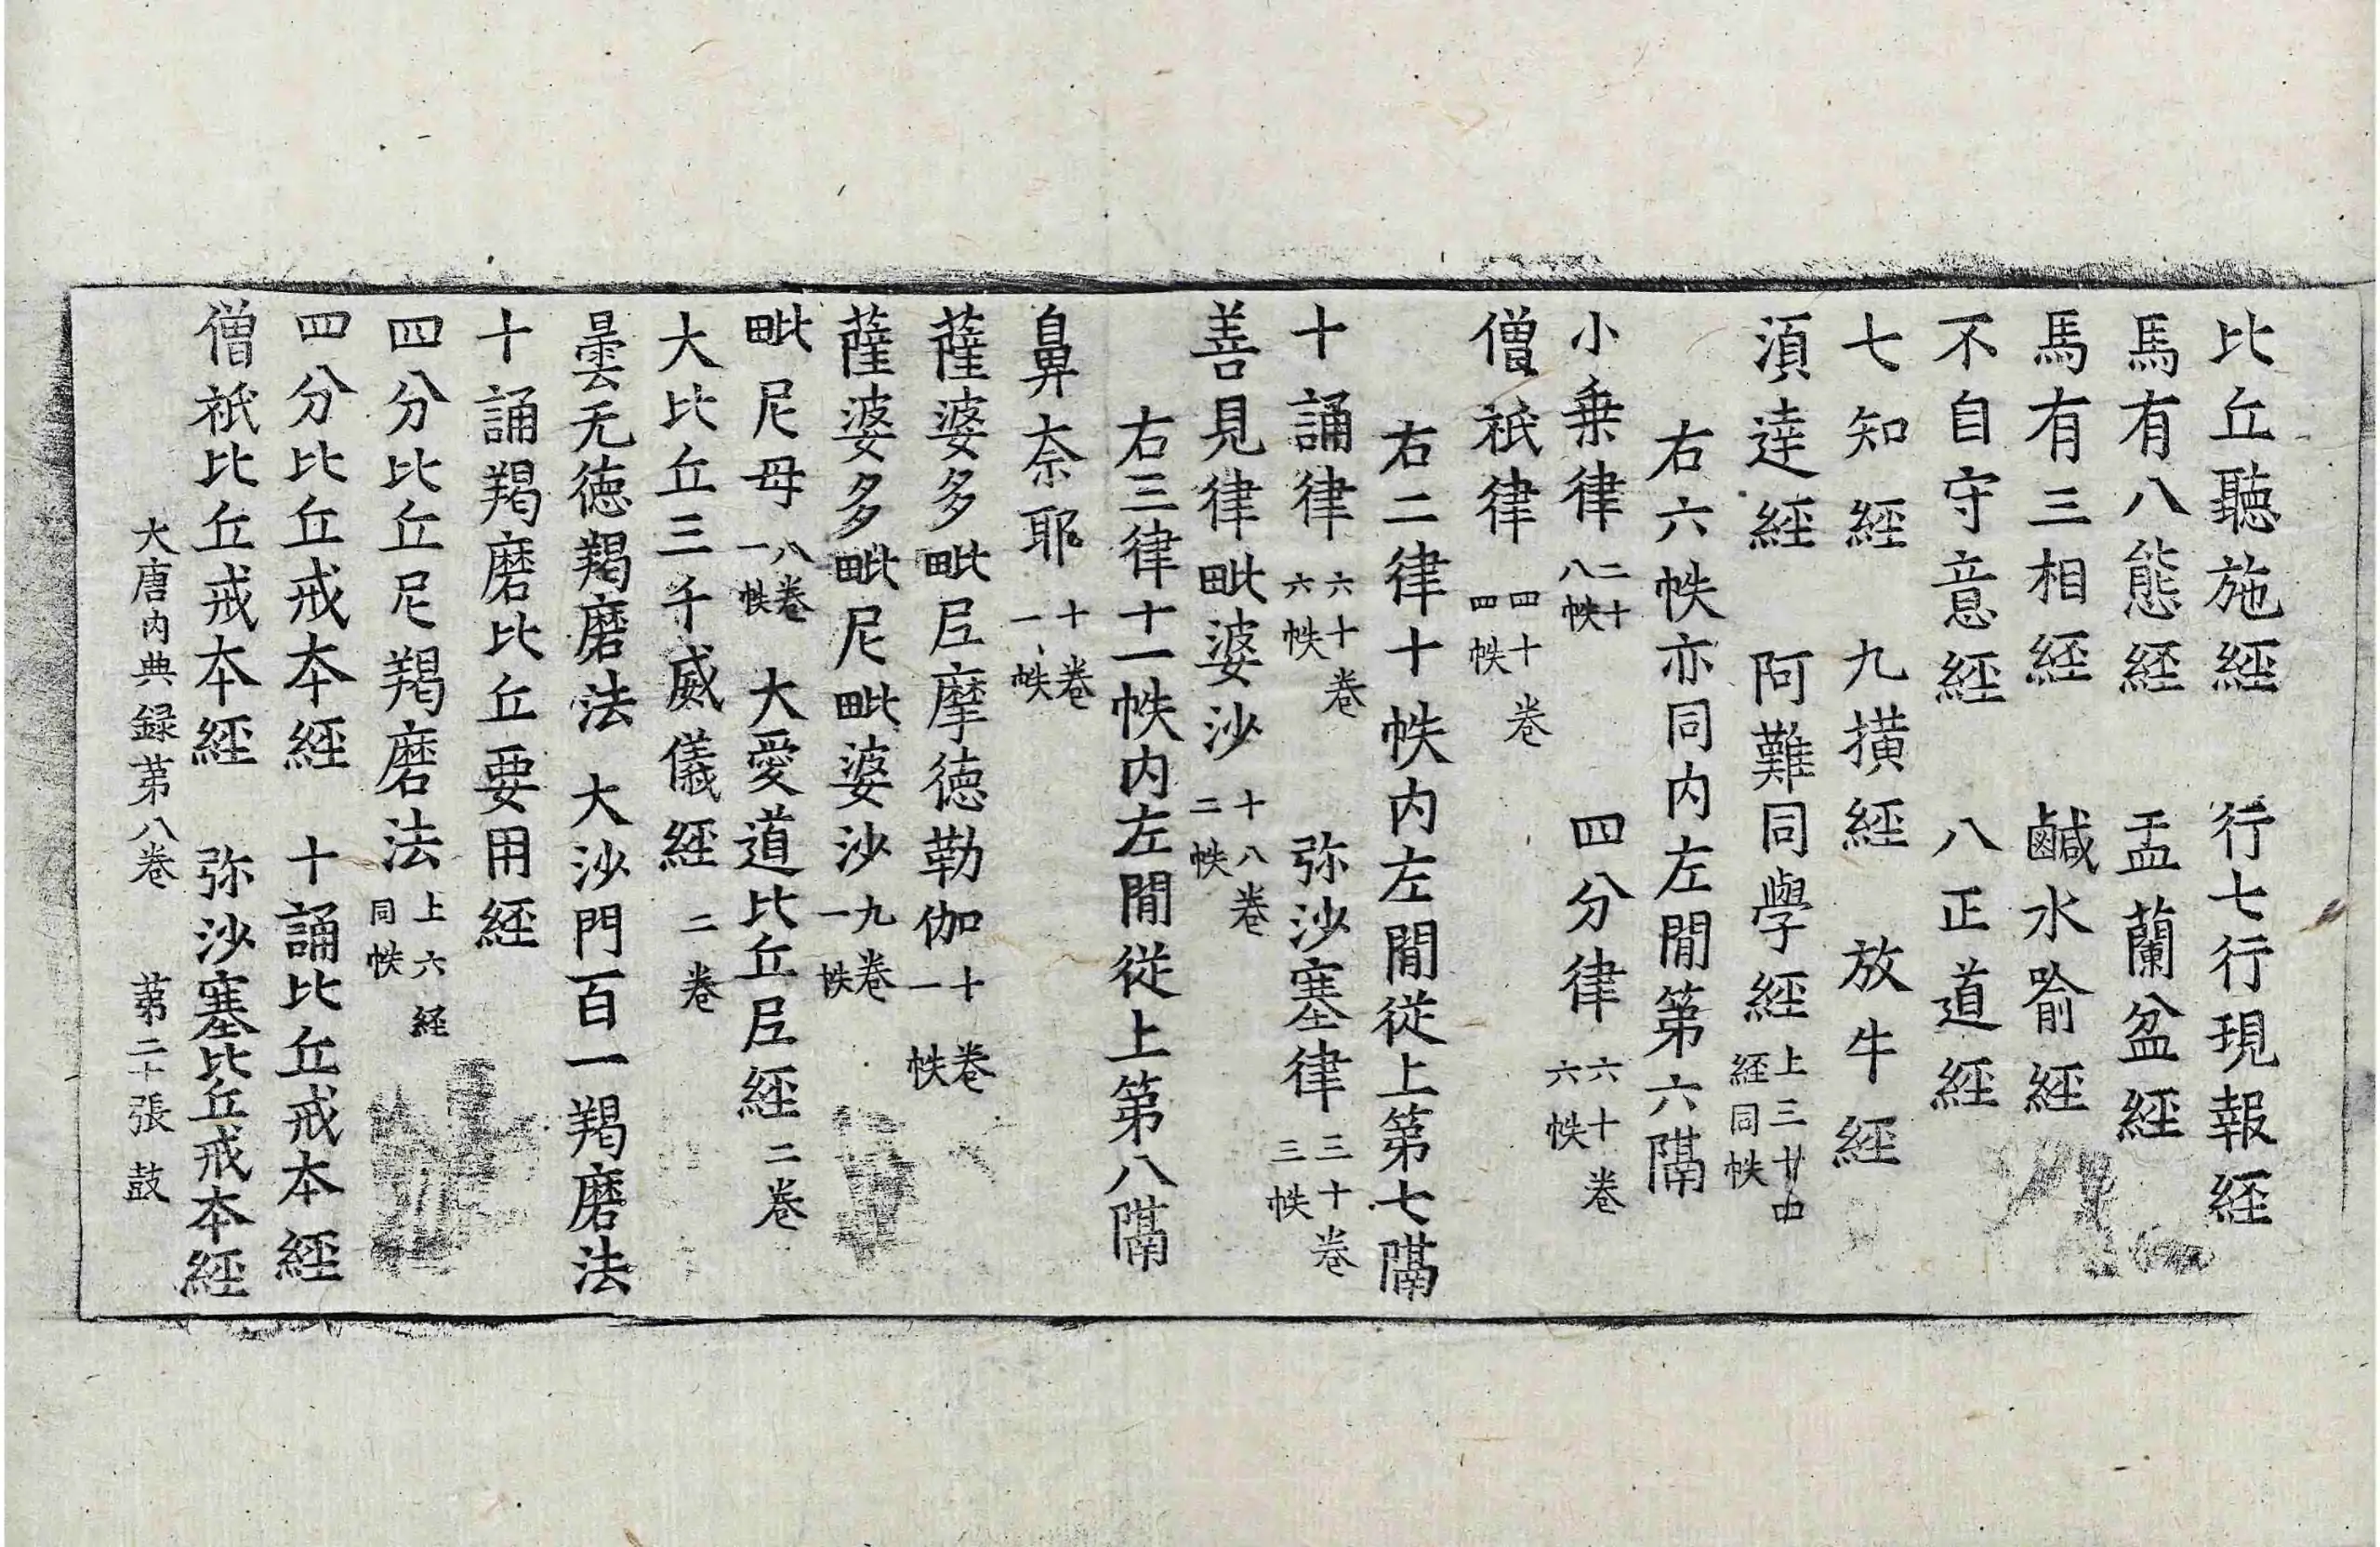 比丘聽施經　行七行現報経
馬有八態経　盂蘭盆經
馬有三相経　鹹水喻經
不自守意經　八正道經
七知經　九撗經　放牛經
湏達經　阿難同學經上三十
經同帙
右六帙亦同内左間第六隔
小乗律二十
八帙
僧祇律四十卷
四帙　四分律六十卷
六帙
右二律十帙内左間從上第七隔
十誦律六十卷
六帙　弥沙塞律三十卷
三帙
善見律毗婆沙十八卷
二帙
右三律十一帙内左間從上第八隔
鼻奈耶十卷
一帙
薩婆多毗尼摩德勒伽十卷
一帙
薩婆多毗尼毗婆沙九卷
一帙
毗尼母八卷
一帙　大愛道比丘尼經二卷
大比丘三千威儀經二卷
曇无德羯磨法　大沙門百一羯磨法
十誦羯磨比丘要用經
四分比丘尼羯磨法上六経
同帙
四分比丘戒本經　十誦比丘戒本經
僧祇比丘戒本經　弥沙塞比丘戒本經
大唐内典録苐八卷　苐二十張　鼓